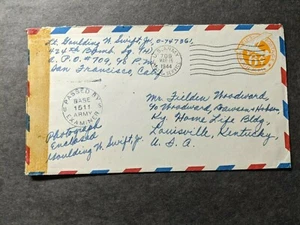 Lt. Goulding W. Swift, Jr. 0-747361
424th Bomb. Sq. (H)
A.P.O. #709, % P.M.
San Francisco, Calif.
U.S. ARMY
709
1944
6¢
PASSED BY
BASE
1511
ARMY
EXAMINER
Mr. Fielden Woodward
% Woodward, Hobson
Ky. Home Life Bldg.
Louisville, Kentucky
U.S.A.
Photograph
Enclosed
Goulding W. Swift, Jr.